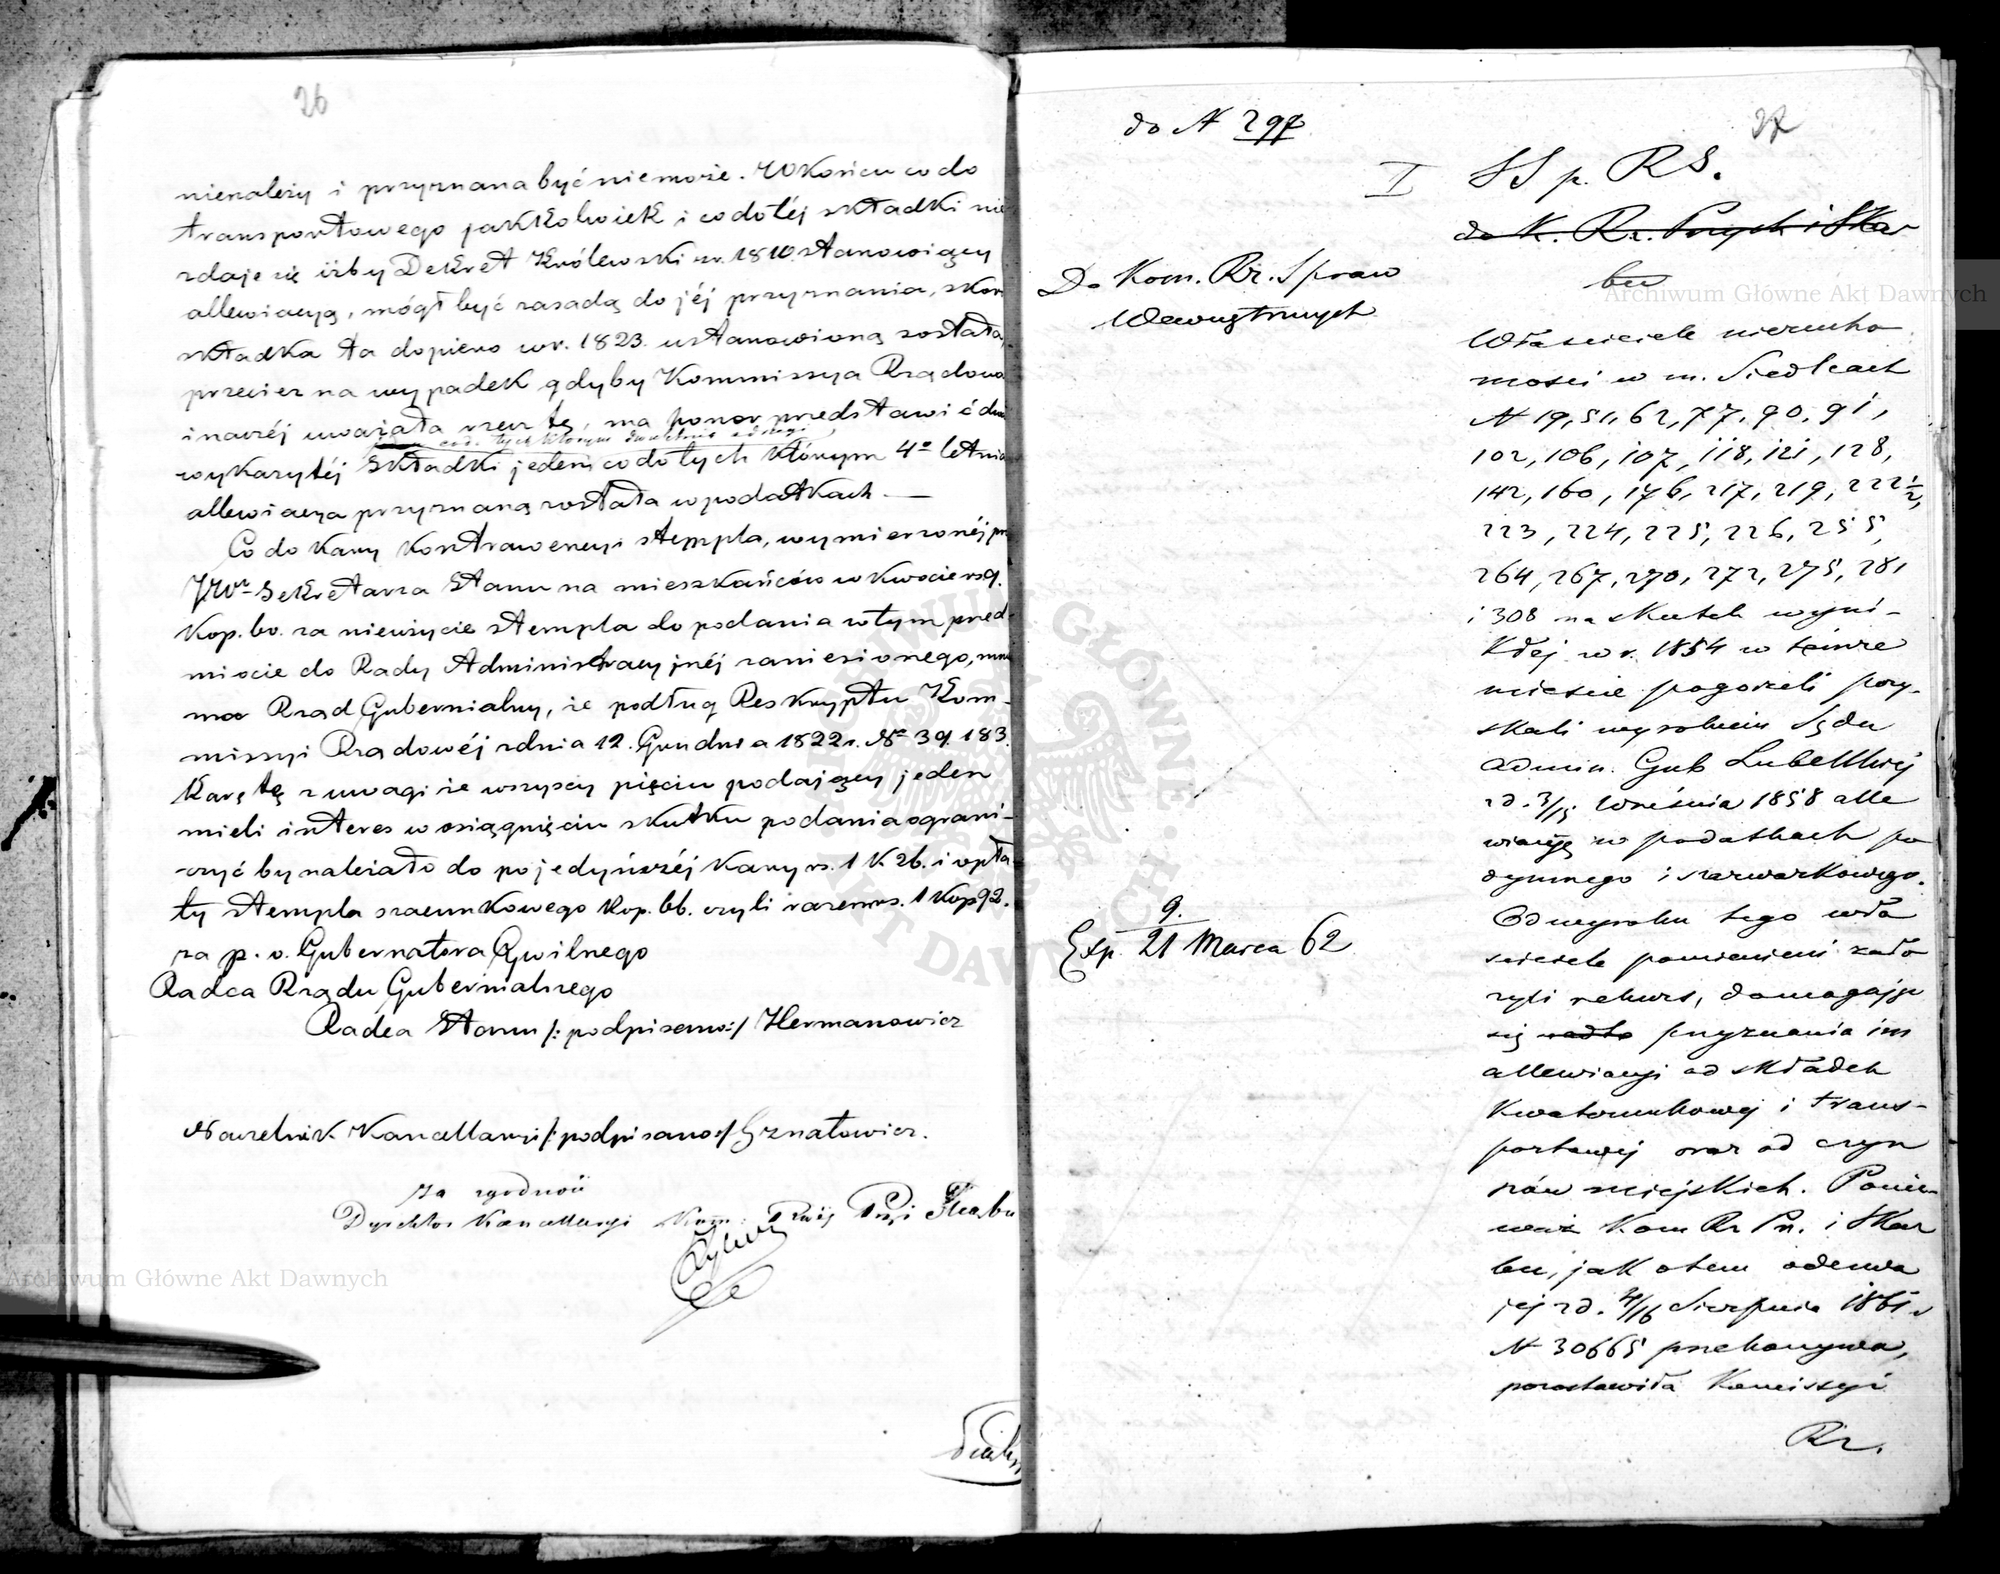 26
nienależy i przyznana być niemoże. W końcu co do
transportowego jakkolwiek i co do téj składki nie
zdaje się iżby Dekret Królewski z r. 1810. stanowiący
allewiacyą, mógł być zasadą do jéj przyznania, skoro
składka ta dopiero w r. 1823. ustanowioną została,
przecież na wypadek gdyby Kommissya Rządowa
inaczéj uważała rzecz tę, ma honor przedstawić dwa
co do tych którym dwuletnia a drugi
wykazy téj Składki jeden co do tych którym 4o letnia
allewiacya przyznaną została w podatkach. —
Co do Kary Kontrawencyi stempla, wymierzonéj prz
JWo Sekretarza Stanu na mieszkańców w kwocie rs 9.
Kop. 60. za nieużycie stempla do podania w tym pred-
miocie do Rady Administracyjnéj zaniesionego, mnie
ma Rząd Gubernialny, że podług Reskryptu Kom-
missyi Rządowéj z dnia 12. Grudnia 1822 r. No 39.183.
Karę tę z uwagi że wszyscy pięciu podający jeden
mieli interes w osiągnięciu skutku podania ograni-
czyć by należało do pojedyńczéj kary rs. 1 K 26. i opła-
ty stempla szacunkowego Kop. 66. czyli razem rs. 1 Kop 92.
za p. o. Gubernatora Cywilnego
Radca Rządu Gubernialnego
Radca Stanu /:podpisano:/ Hermanowicz
Naczelnik Kancellaryi /:podpisano:/ Ignatowicz.
Za zgodność
Dyrektor Kancellaryi Kom: Rząd: Prz: i Skarbu
do N 297
27
I
SS p. RS.
do K. Rz. Przych i Skar
bu
Do Kom. Rz. Spraw
Wewnętrznych
Właściciele nierucho
mości w m. Siedlcach
N 19, 51, 62, 77, 90, 91,
102, 106, 107, 118, 121, 128,
142, 160, 176, 217, 219, 222½,
223, 224, 225, 226, 255,
264, 267, 270, 272, 275, 281
i 308 na skutek wyni-
kłej w r. 1854 w temże
mieście pogorzeli pozy-
skali wyrokiem Sądu
Admin. Gub Lubelskiej
z d. 3/15 Września 1858 alle
wiacyę w podatkach po
dymnego i szarwarkowego.
Od wyroku tego wła
ściciele pomienieni zało
żyli rekurs, domagając
się nadto przyznania im
allewiacyi od składek
Kwaterunkowej i trans-
portowej oraz od czyn
szów miejskich. Ponie
waż Kom Rz Prz. i Skar
bu, jak o tem odezwa
jej z d. 4/16 Sierpnia 1861 r
N 30665 przekonywa,
pozostawiła Komissyi
Rz.
9.
Exp. 21 Marca 62
Archiwum Główne Akt Dawnych
Archiwum Główne Akt Dawnych
ARCHIWUM GŁÓWNE AKT DAWNYCH